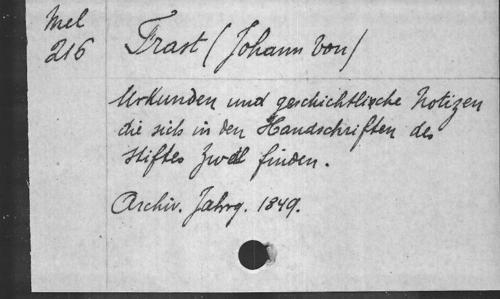 Mel
216
Frast (Johann von)
Urkunden und geschichtliche Notizen
die sich in den Handschriften des
Stiftes Zwetl finden.
Archiv. Jahrg. 1849.